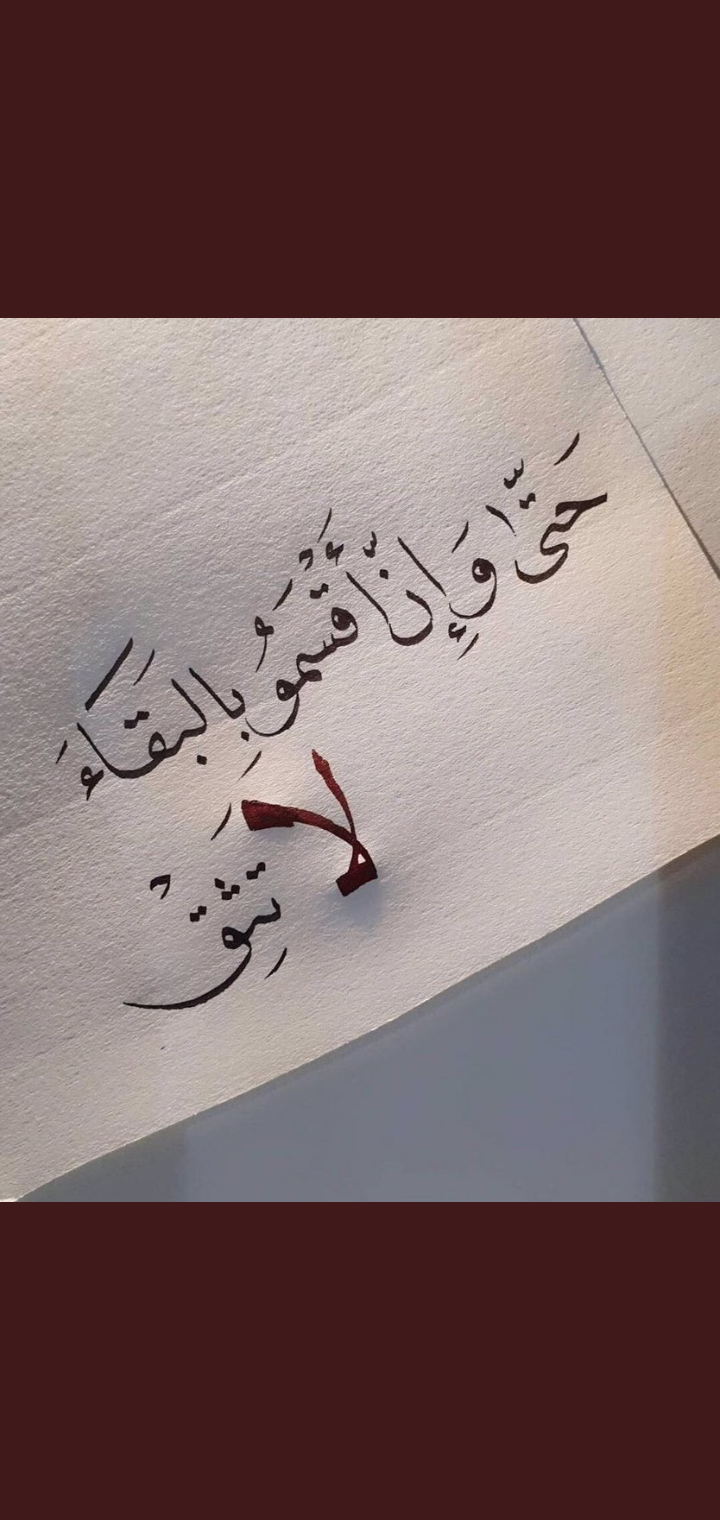 حَتَّىٰ وَإِنّ أَقْسَمُو بِالبَقَاءَ
لا تَثِقْ